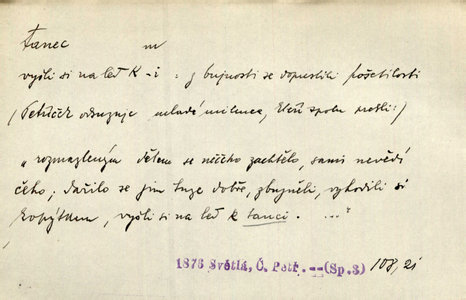 Tanec m
vyšli si na leď k - i : z bujnosti se dopustili pošetilosti
(Petříček odsuzuje mladé milence, kteří spolu prchli:)
„ rozmazleným dětem se něčeho zachtělo, sami nevědí
čeho; dařilo se jim tuze dobře, zbujněli, vyhodili si
kopýtkem, vyšli si na leď k tanci. ..."
1876 Světlá, Č. Petř. -- (Sp.3) 108, 21